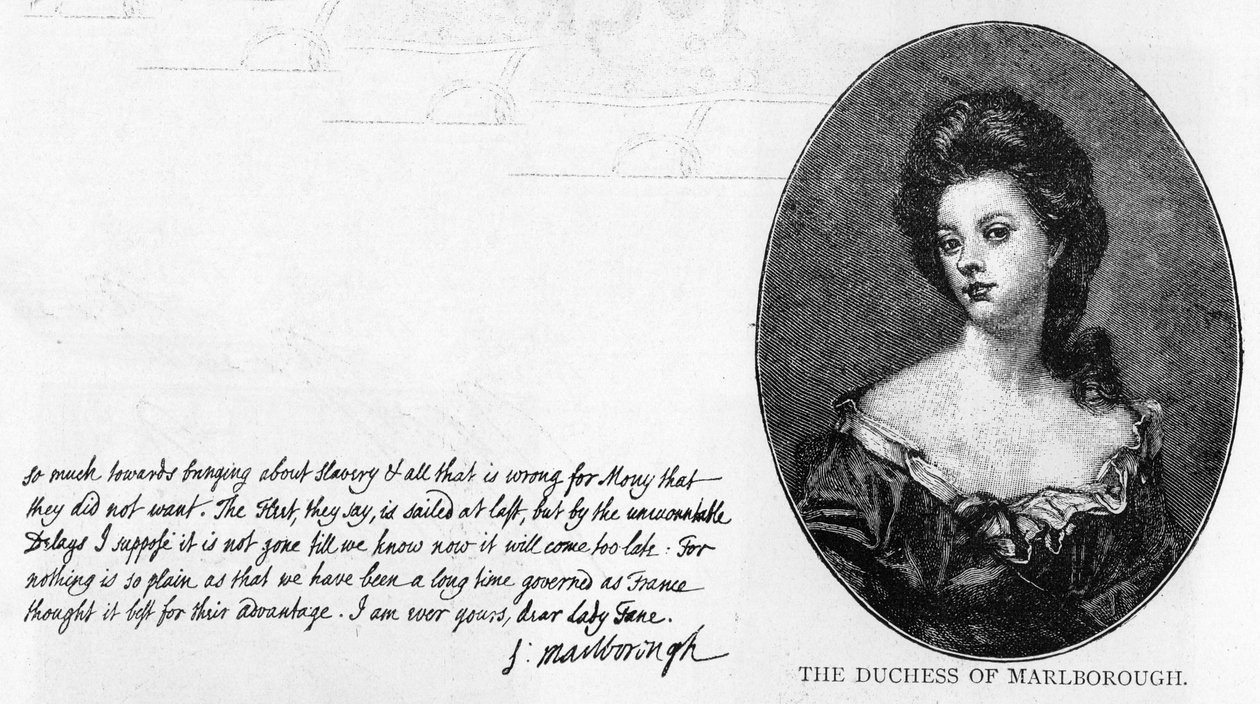 so much towards bringing about Slavery & all that is wrong for Mony that
they did not want. The Fleet, they say, is sailed at last, but by the unaccountable
Delays I suppose it is not gone till we know now it will come too late : For
nothing is so plain as that we have been a long time governed as France
thought it best for their advantage. I am ever yours, dear Lady Fane.
S: Marlborough
THE DUCHESS OF MARLBOROUGH.